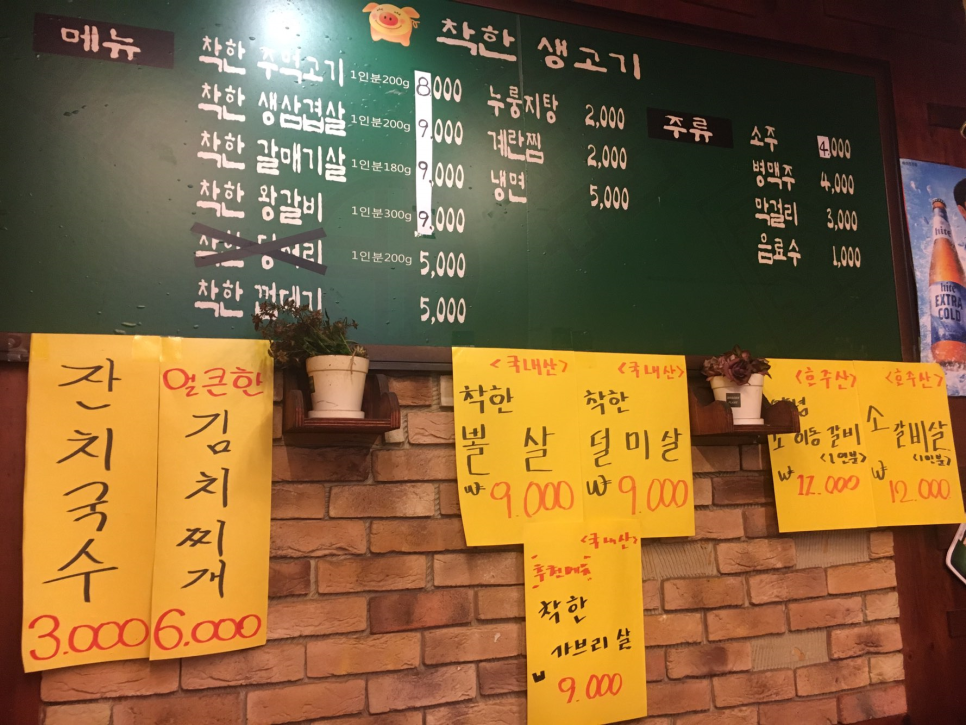 메뉴
착한 생고기
착한 주먹고기 1인분200g 8,000
착한 생삼겹살 1인분200g 9,000
착한 갈매기살 1인분180g 9,000
착한 왕갈비 1인분300g 9,000
착한 1인분200g 5,000
착한 껍데기 5,000
누룽지탕 2,000
계란찜 2,000
냉면 5,000
주류
소주 4,000
병맥주 4,000
막걸리 3,000
음료수 1,000
hite
EXTRA
COLD
잔치국수
3.000
얼큰한
김치찌개
6.000
<국내산>
착한
볼살
₩ 9.000
<국내산>
착한
덜미살
₩ 9.000
<호주산>
소 갈비
<1인분>
₩ 12.000
<호주산>
소 갈비살
<1인분>
₩ 12.000
<국내산>
착한
가브리살
₩ 9.000